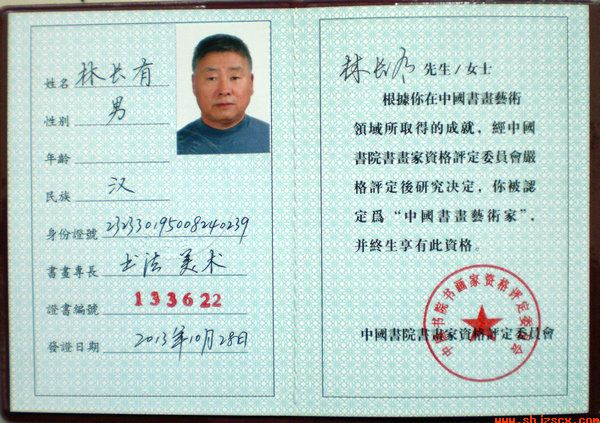 姓名 林长有
性別 男
年齡
民族 汉
身份證號 232330195008240239
書畫專長 书法 美术
證書編號 133622
發證日期 2013年10月28日
林长有 先生/女士
根據你在中國書畫藝術
領域所取得的成就，經中國
書院書畫家資格評定委員會嚴
格評定後研究決定，你被認
定爲“中國書畫藝術家”，
并終生享有此資格。
中国书院书画家资格评定委员会
中國書院書畫家資格評定委員會
www.shjzscx.com